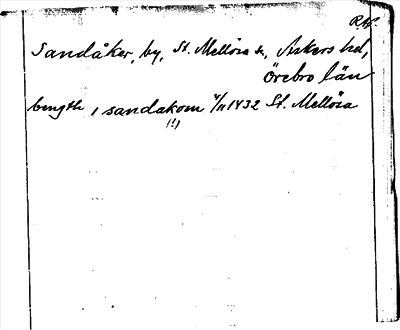 RAp.
Sandåker, by, St. Mellösa sn, Askers hd,
Örebro län
bength i sandakom 4/11 1432 St. Mellösa
(!)